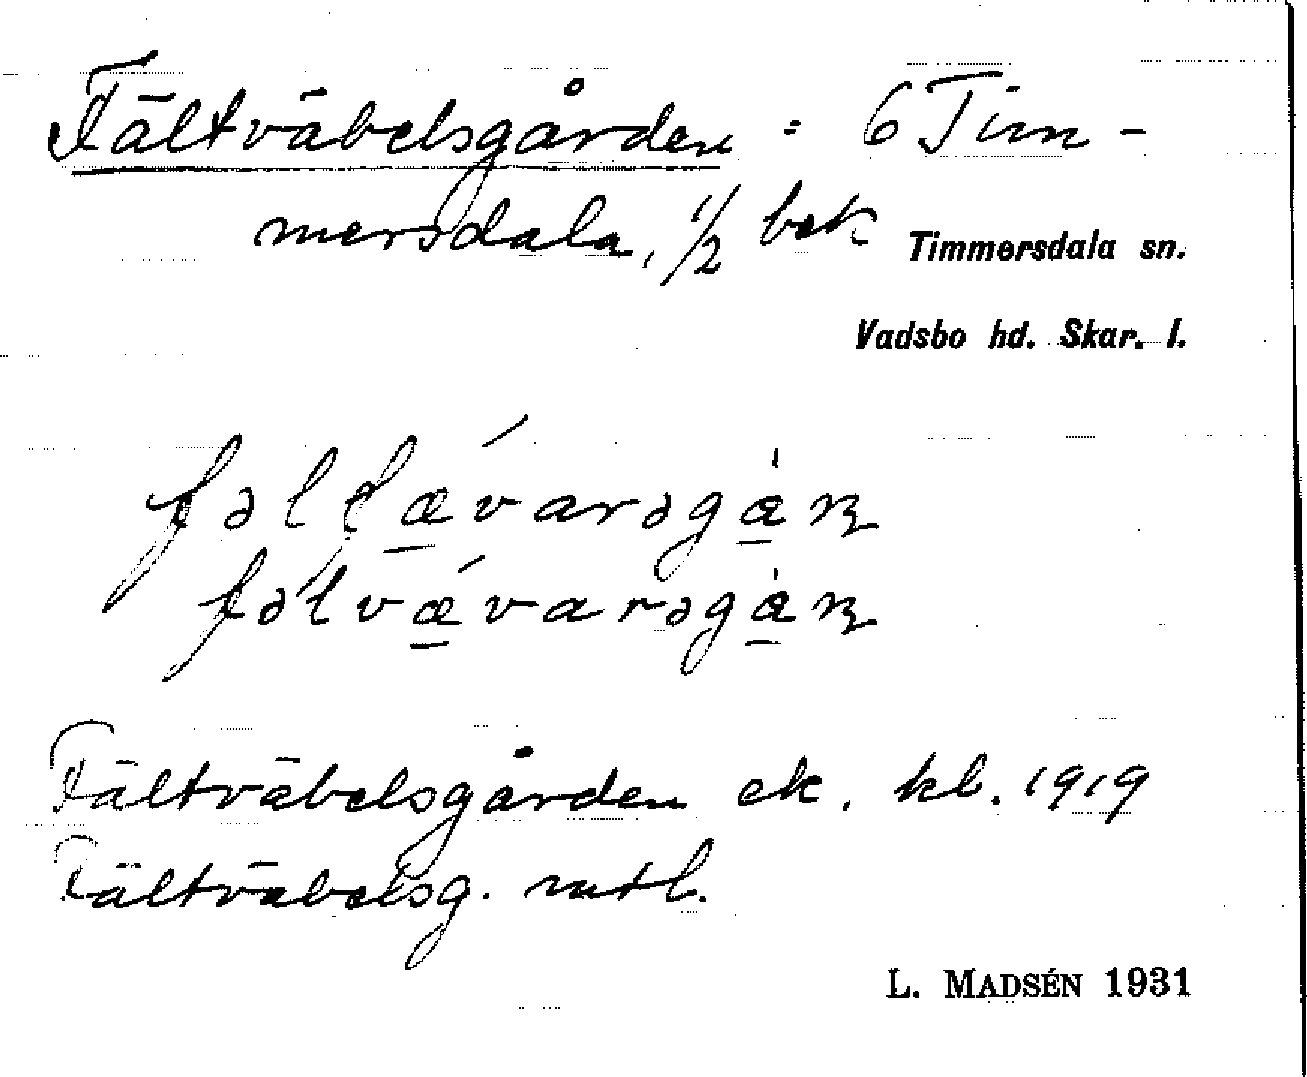 Fältväbelsgården = 6 Tim-
mersdala, 1/2 bek
Timmersdala sn.
Vadsbo hd. Skar. l.
fəlvǽvarəgàɴ
Fältväbelsgården ek. kl. 1919
Fältväbelsg. mtl.
L. MADSÉN 1931